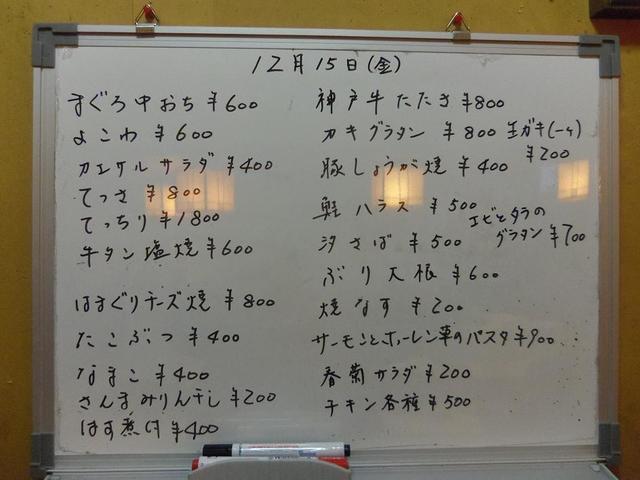 12月15日(金)
まぐろ中おち ¥600
よこわ ¥600
カエサル サラダ ¥400
てっさ ¥800
てっちり ¥1800
牛タン塩焼 ¥600
はまぐりチーズ焼 ¥800
たこぶつ ¥400
なまこ ¥400
さんまみりん干し ¥200
はす煮付 ¥400
神戸牛たたき ¥800
カキグラタン ¥800 生ガキ(一ヶ)
¥200
豚しょうが焼 ¥400
鮭ハラス ¥500
エビとタラの
グラタン ¥700
汐さば ¥500
ぶり大根 ¥600
焼なす ¥200
サーモンとホーレン草のパスタ ¥900
春菊サラダ ¥200
チキン各種 ¥500